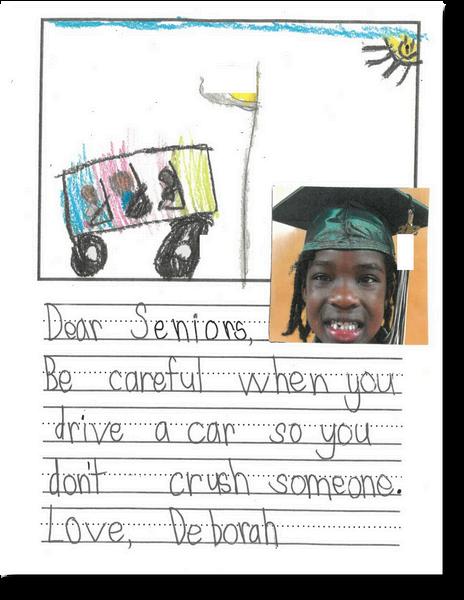 Dear Seniors,
Be careful when you
drive a car so you
don't crush someone.
Love, Deborah